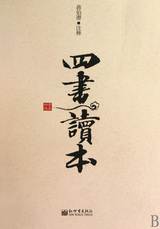 蒋伯潜·注释
四書讀本
新世界出版社
NEW WORLD PRESS
B